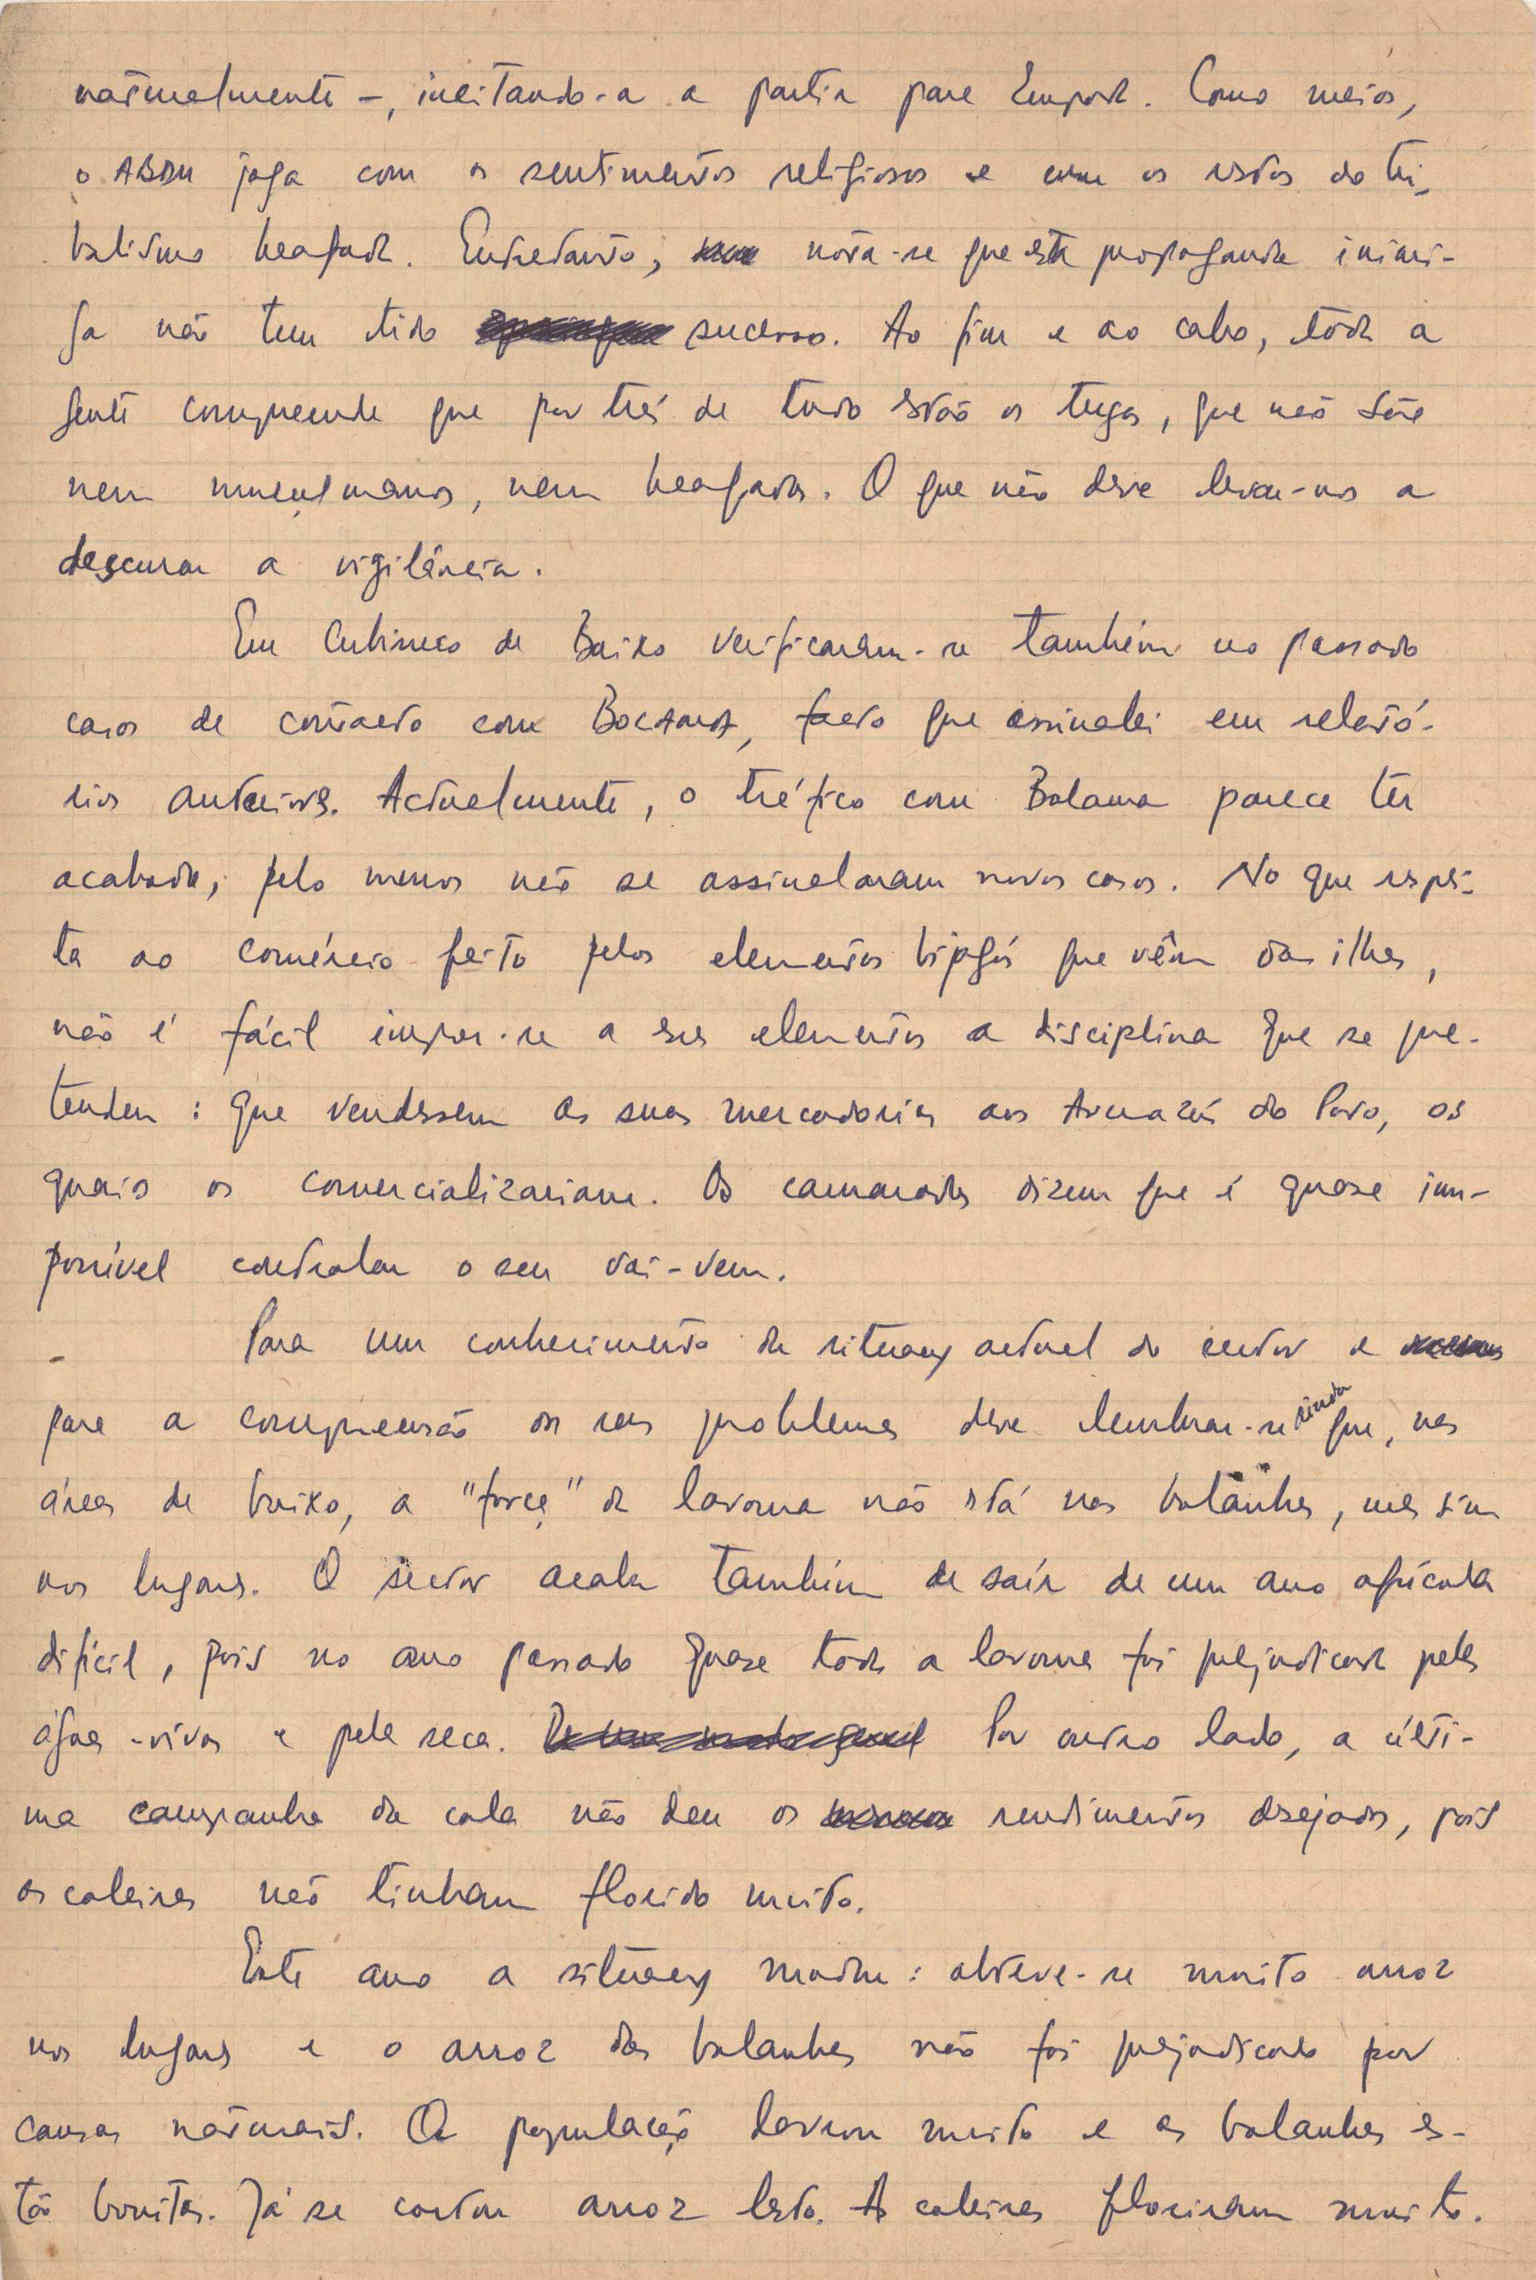 naturalmente –, incitando-a a partir para Empada. Como meios,
o ABDU joga com os sentimentos religiosos e com os restos do tri-
balismo beafada. Entretanto, nota-se que esta propaganda inimi-
ga não tem tido sucesso. Ao fim e ao cabo, toda a
gente compreende que por trás de tudo estão os tugas, que não são
nem muçulmanos, nem beafadas. O que não deve levar-nos a
descurar a vigilância.
Em Cubisseco de Baixo verificaram-se também no passado
casos de contacto com Bolama, facto que assinalei em relató-
rios anteriores. Actualmente, o tráfico com Bolama parece ter
acabado, pelo menos não se assinalaram novos casos. No que respei-
ta ao comércio feito pelos elementos bijagós que vêm das ilhas,
não é fácil impor-se a esses elementos a disciplina que se pre-
tendeu: que vendessem as suas mercadorias aos Armazéns do Povo, os
quais os comercializariam. Os camaradas dizem que é quase im-
possível controlar o seu vai-vem.
– Para um conhecimento da situação actual do sector e
para a compreensão dos seus problemas deve lembrar-se ainda que, nas
áreas de baixo, a "força" da lavoura não está nas bolanhas, mas sim
nos lugares. O sector acaba também de sair de um ano agrícola
difícil, pois no ano passado quase toda a lavoura foi prejudicada pelas
águas-vivas e pela seca. Por outro lado, a últi-
ma campanha da cola não deu os rendimentos desejados, pois
as coleiras não tinham florido muito.
Este ano a situação mudou: obteve-se muito arroz
nos lugares e o arroz das bolanhas não foi prejudicado por
causas naturais. A população lavrou muito e as bolanhas es-
tão bonitas. Já se cortou arroz lesto. As coleiras floriram muito.